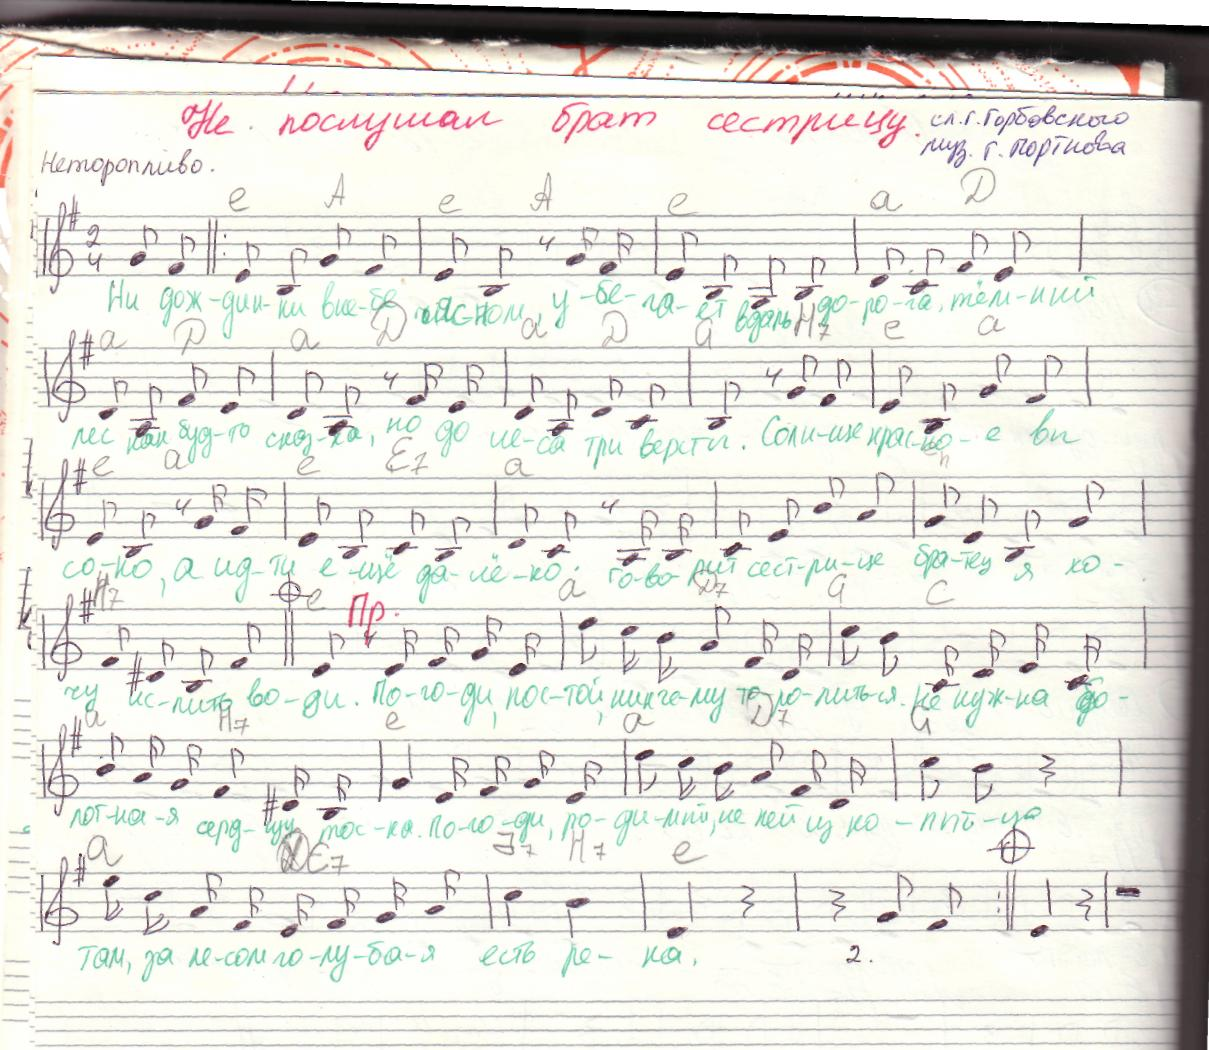 Не послушал брат сестрицу.
сл. Г. Горбовского
муз. Г. Портнова
Неторопливо.
e A e A e a D
2
4
Ни дож-дин-ки в не-бе яс-ном, у-бе-га-ет вдаль до-ро-га, тём-ний
a D a D a D G H7 e a
лес как буд-то сказ-ка, но до ле-са три версты. Солн-це крас-но-е вы
e a e E7 a
со-ко, а ид-ти е-щё да-лё-ко. го-во-рит сест-ри-це бра-тец я хо-
H7 e Пр. a D7 G C
чу ис-пить во-ди. По-го-ди, пос-той, ни к че-му то ро-пить-ся. Не нуж-на бо-
a H7 e a D7 G
лот-на-я серд-цу тос-ка. По-го-ди, ро-ди-мий, не пей из ко-пыт-ца
a E7 H7 e
там, за ле-сом го-лу-ба-я есть ре-ка.
2.